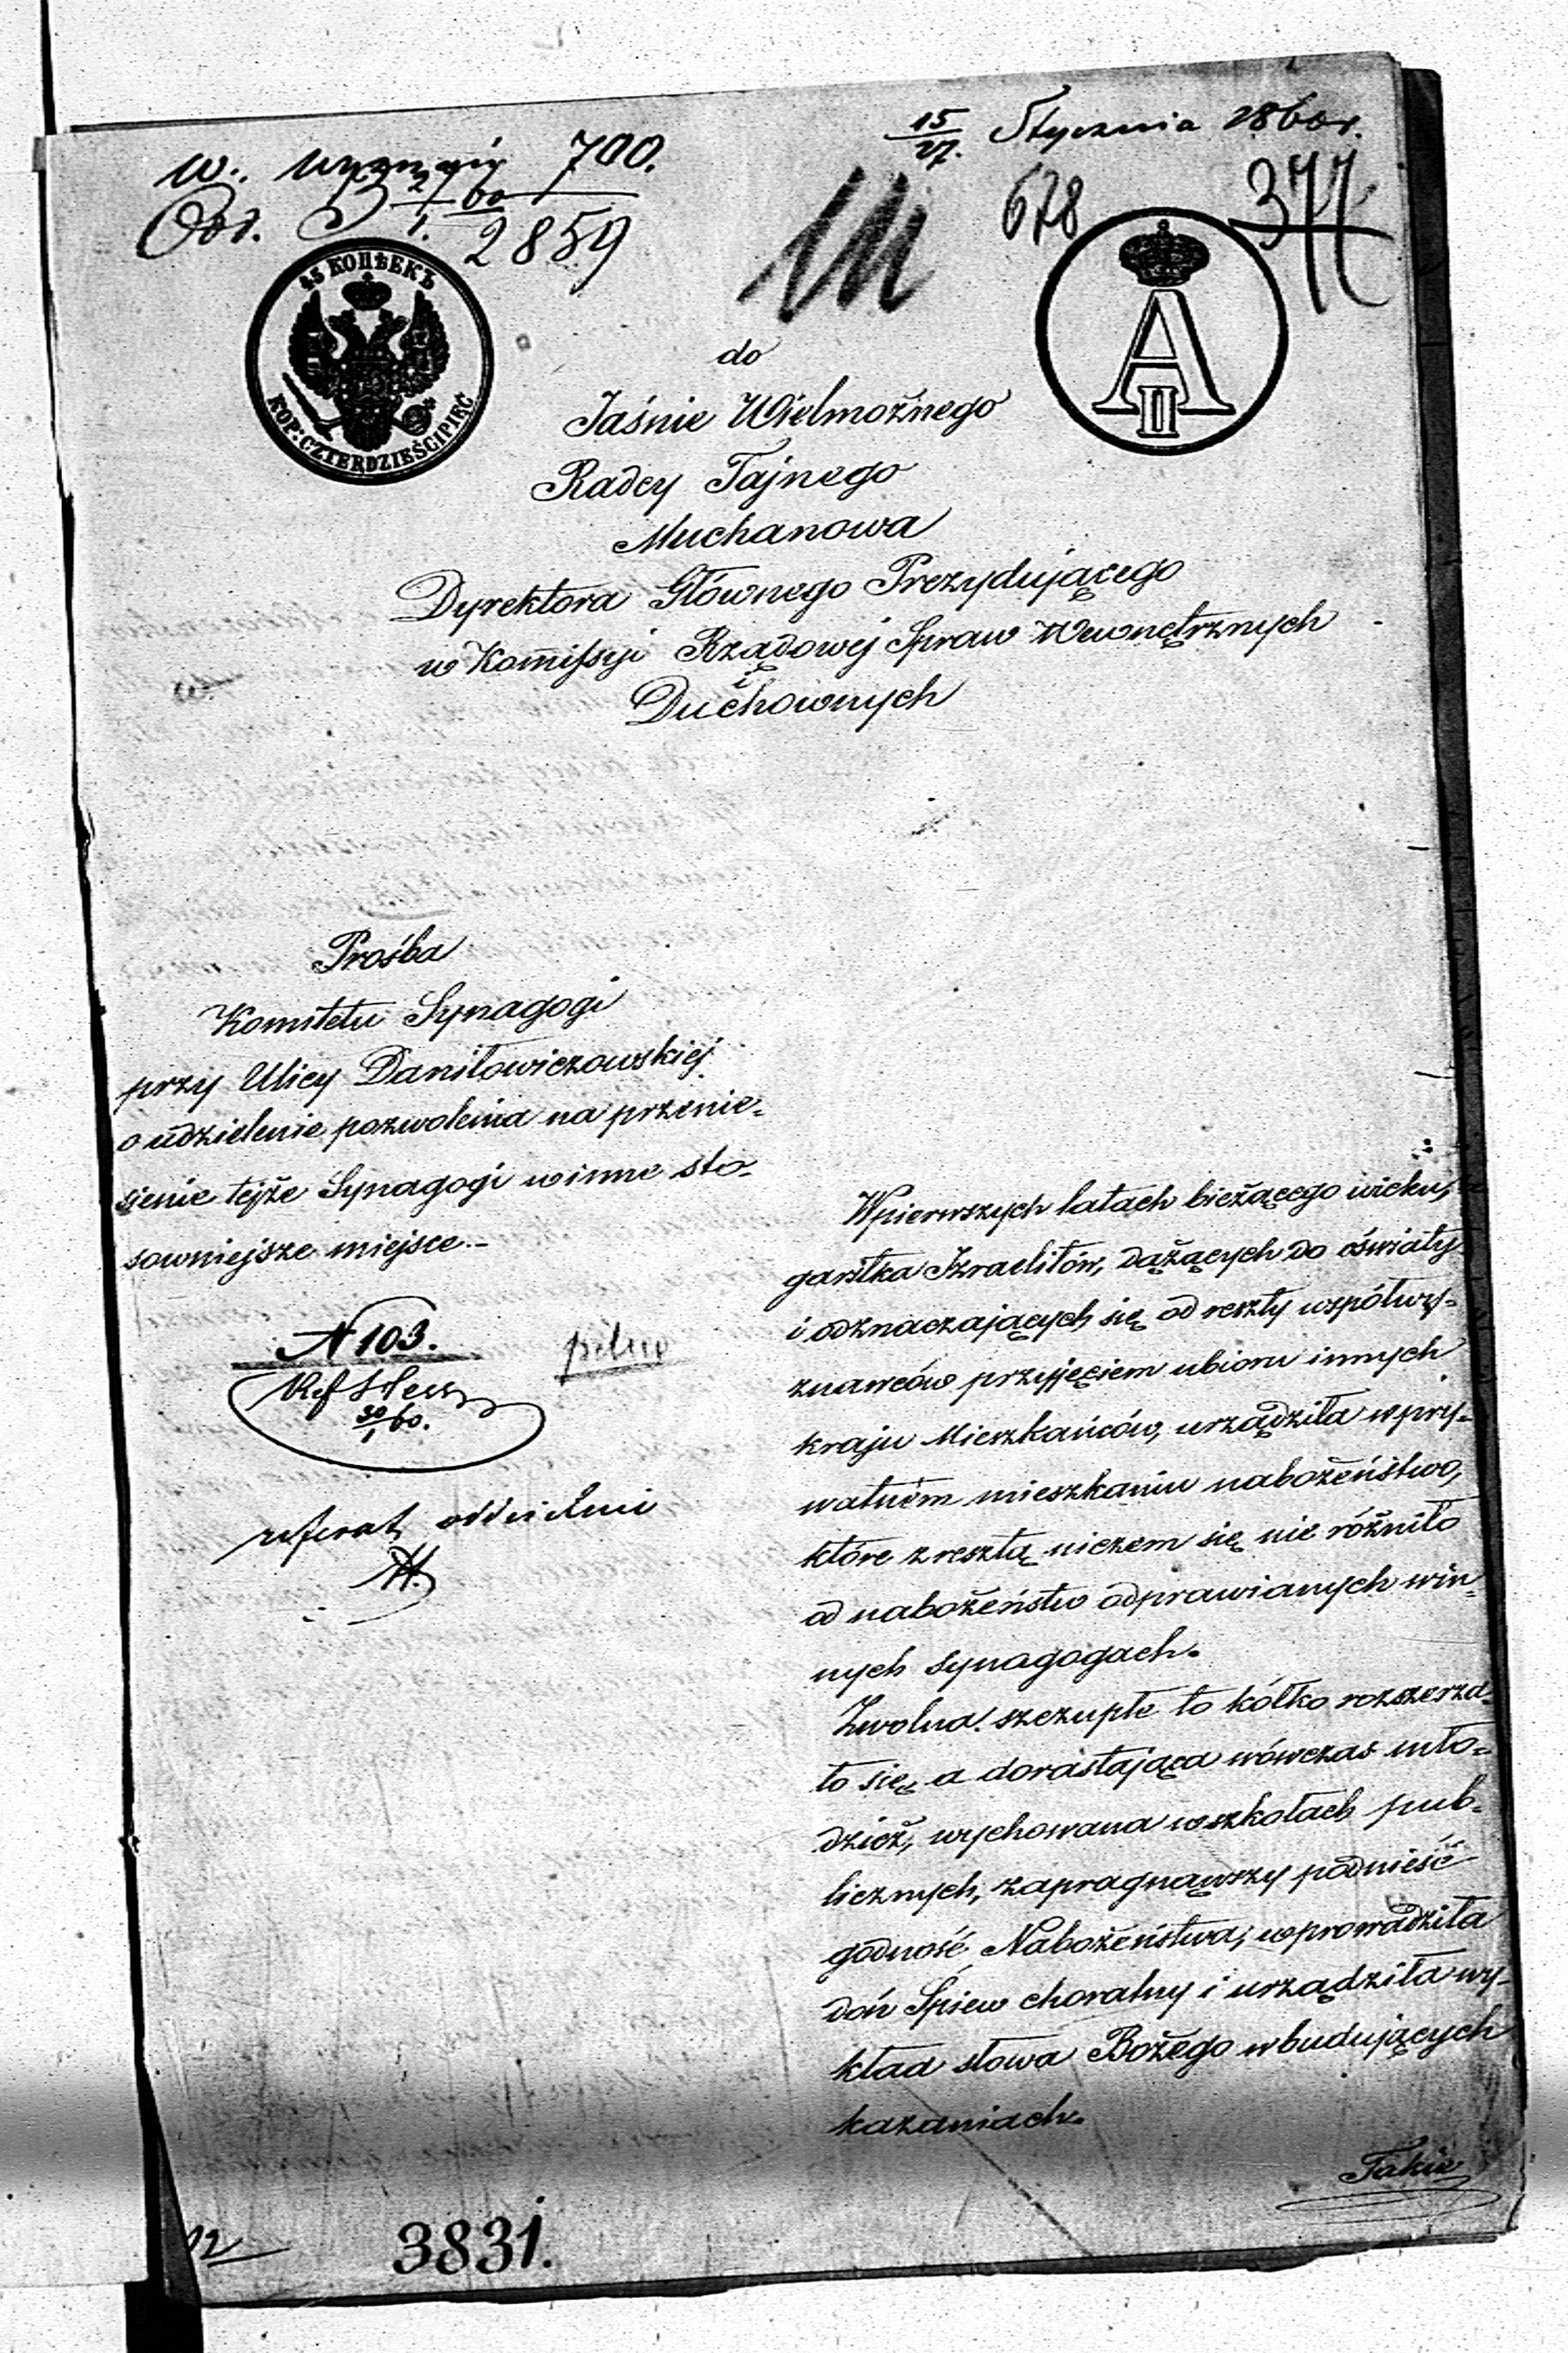 15/27. Stycznia 1860 r.
W. wyznań 700.
678
377
Odd. 2/1. 60
2859
45 КОПѢЕКЪ
KOP: CZTERDZIEŚCI PIĘĆ
A II
do
Jaśnie Wielmożnego
Radcy Tajnego
Muchanowa
Dyrektora Głównego Prezydującego
w Kommissyi Rządowej Spraw Wewnętrznych
i
Duchownych
Prośba
Komitetu Synagogi
przy Ulicy Daniłowiczowskiej
o udzielenie pozwolenia na przenie-
sienie tejże Synagogi w inne sto-
sowniejsze miejsce.-
N 103.
Ref
30/1 60.
pilno
referat oddzielni
W pierwszych latach bieżącego wieku,
garstka Izraelitów, dążących do oświaty
i odznaczających się od reszty współwy-
znawców przyjęciem ubioru innych
kraju Mieszkańców, urządziła w pry-
watném mieszkaniu nabożeństwo,
które z resztą niczem się nie różniło
od nabożeństw odprawianych w in-
nych synagogach.
Zwolna szczupłe to kółko rozszerza-
ło się, a dorastająca wówczas mło-
dzież, wychowana w szkołach pub-
licznych, zapragnąwszy podnieść
godność Nabożeństwa, wprowadziła
doń Śpiew choralny i urządziła wy-
kład słowa Bożego w budujących
kazaniach.
Takie
12
3831.